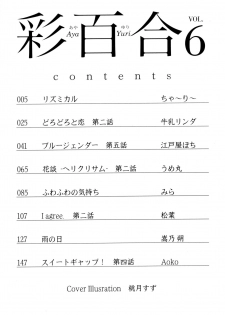 彩百合 VOL. 6
あや Aya ゆり Yuri
contents
005 リズミカル ちゃ〜り〜
025 どろどろと恋 第二話 牛乳リンダ
041 ブルージェンダー 第五話 江戸屋ぽち
065 花談 -ヘリクリサム- 第二話 うめ丸
085 ふわふわの気持ち みら
107 I agree. 第二話 松葉
127 雨の日 嵩乃朔
147 スイートギャップ! 第四話 Aoko
Cover Illustration 桃月すず